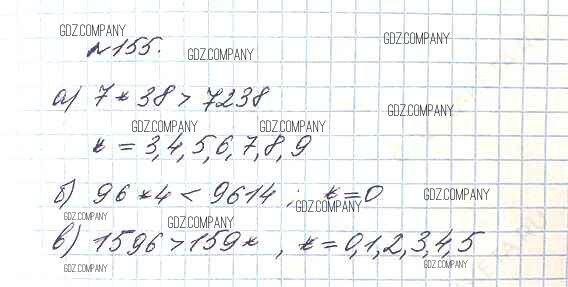 GDZ.COMPANY
№155.
GDZ.COMPANY
GDZ.COMPANY
а) 7*38 > 7238
GDZ.COMPANY
GDZ.COMPANY
GDZ.COMPANY
* = 3,4,5,6,7,8,9
б) 96*4 < 9614 ; *=0
GDZ.COMPANY
GDZ.COMPANY
GDZ.COMPANY
GDZ.COMPANY
в) 1596 > 159* , * = 0,1,2,3,4,5
GDZ.COMPANY
GDZ.COMPANY